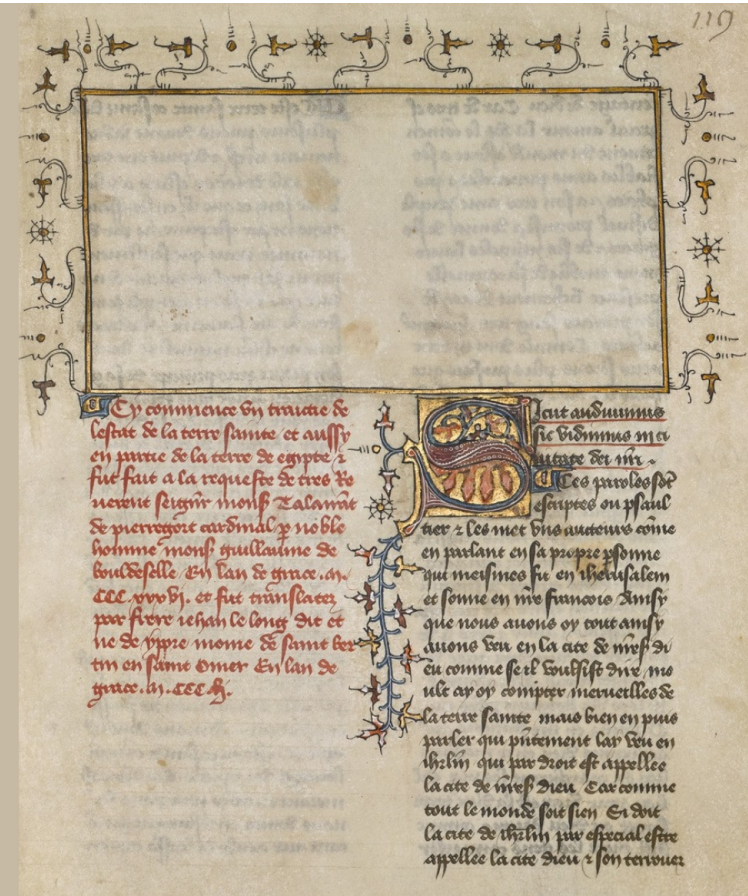 119
Cy commence vn traictie de
lestat de la terre sainte et aussy
en partie de la terre de egypte ⁊
fut fait a la requeste de tres Re
uerent seignr mons Talairāt
de pierregort cardinal p̱ noble
homme mons guillaume de
bouldeselle En lan de grace .m.
CCC xxxvi. et fut translatez
par frere iehan le long dit et
ne de yppre moine de saint ber
tin en saint Omer En lan de
grace .m. CCC
Sicut audiuimus
sic vidimus in ci
uitate dei nr̄i .
Ces paroles sōt
escriptes ou psaul
tier ⁊ les met vns aucteurs cōme
en parlant en sa propre p̱sonne
qui meismes fu en iherusalem
et sonne en nr̄e francois Ainsy
que nous auons oy tout ainsy
auons veu en la cite de nr̄e di
eu comme se il voulsist dire mo
ult ay oy compter merueilles de
la terre sainte mais bien en puis
parler qui pn̄tement lay veu en
ihrl̄m qui par droit est appellee
la cite de nr̄e dieu Car comme
tout le monde soit sien Si doit
la cite de ihrl̄m par especial estre
appellee la cite dieu ⁊ son terrouer